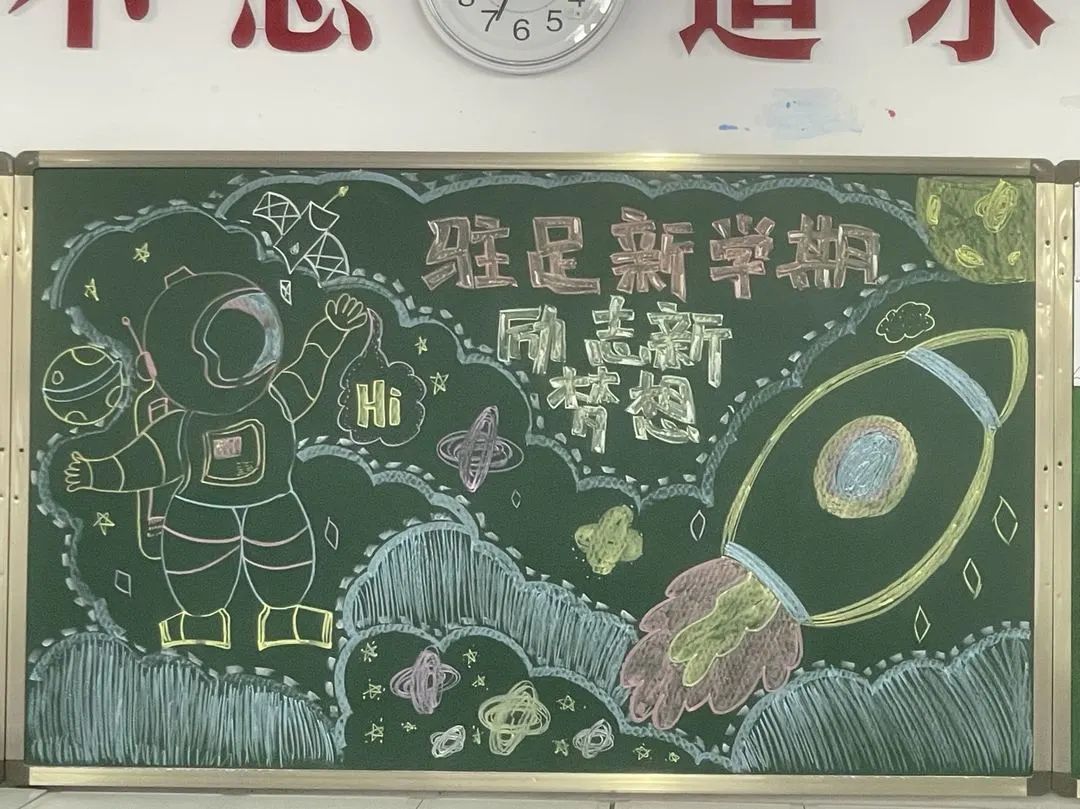 7 6 5
驻足新学期
励志新
梦想
Hi